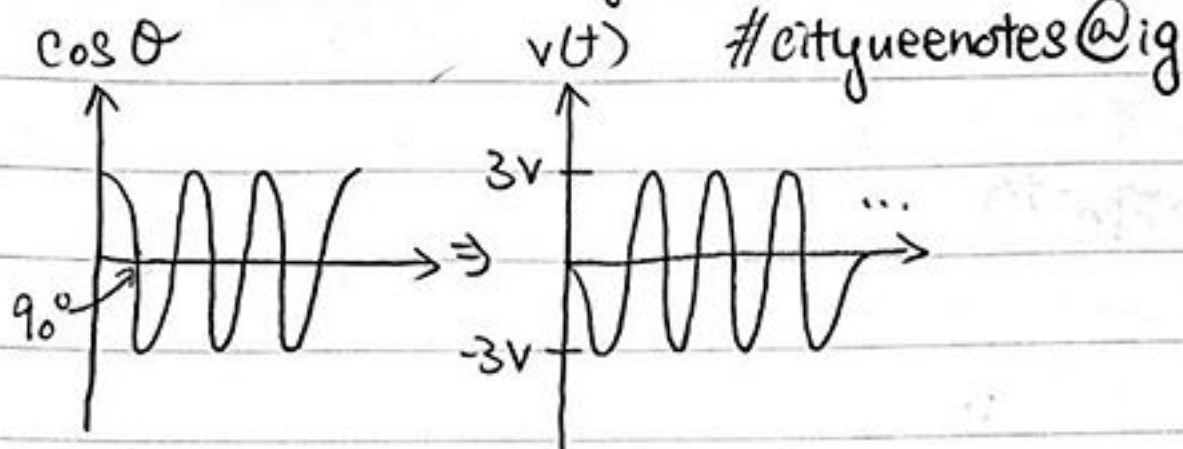 cos θ
v(t)
#cityueenotes@ig
3V
...
⇒
90°
-3V